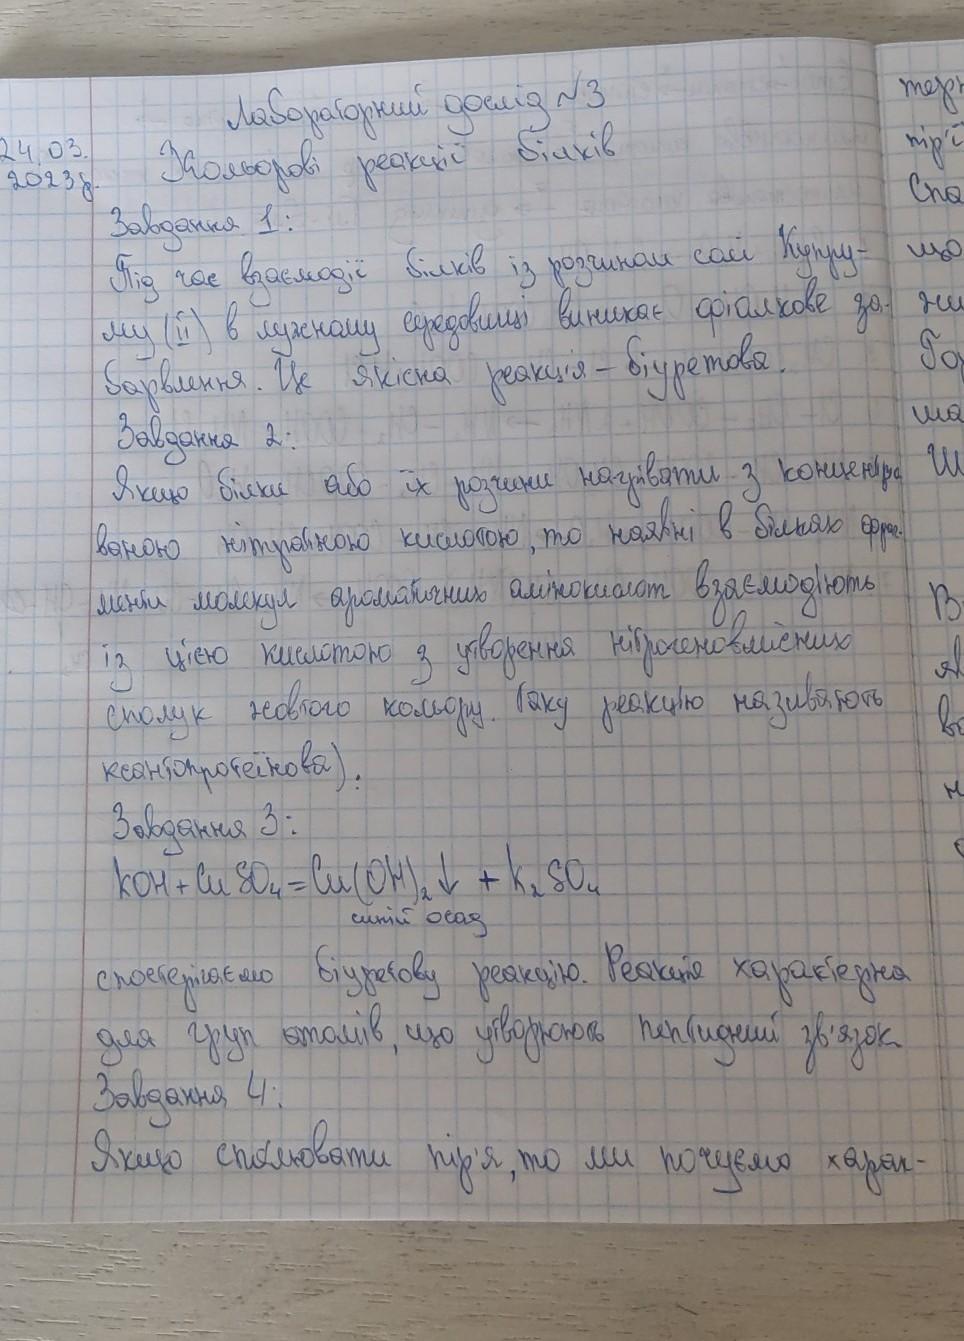 Лабораторний дослід №3
24.03.
2023р.
Кольорові реакції білків
Завдання 1:
Під час взаємодії білків із розчином солі Купру-
му (ІІ) в лужному середовищі виникає фіалкове за-
барвлення. Це якісна реакція – біуретова.
Завдання 2:
Якщо білки або їх розчини нагрівати з концентро
ваною нітратною кислотою, то наявні в білках фраг-
менти молекул ароматичних амінокислот взаємодіють
із цією кислотою з утворення нітрогеновмісних
сполук жовтого кольору. Таку реакцію називають
ксантопротеїнова).
Завдання 3:
KOH + CuSO₄ = Cu(OH)₂↓ + K₂SO₄
синій осад
спостерігаємо біуретову реакцію. Реакція характерна
для груп атомів, що утворюють пептидний зв'язок
Завдання 4:
Якщо спалювати пір'я, то ми почуємо харак-
терн
пір'ї
Спа
що
жи
Го
ша
Ш
В
яв
во
н